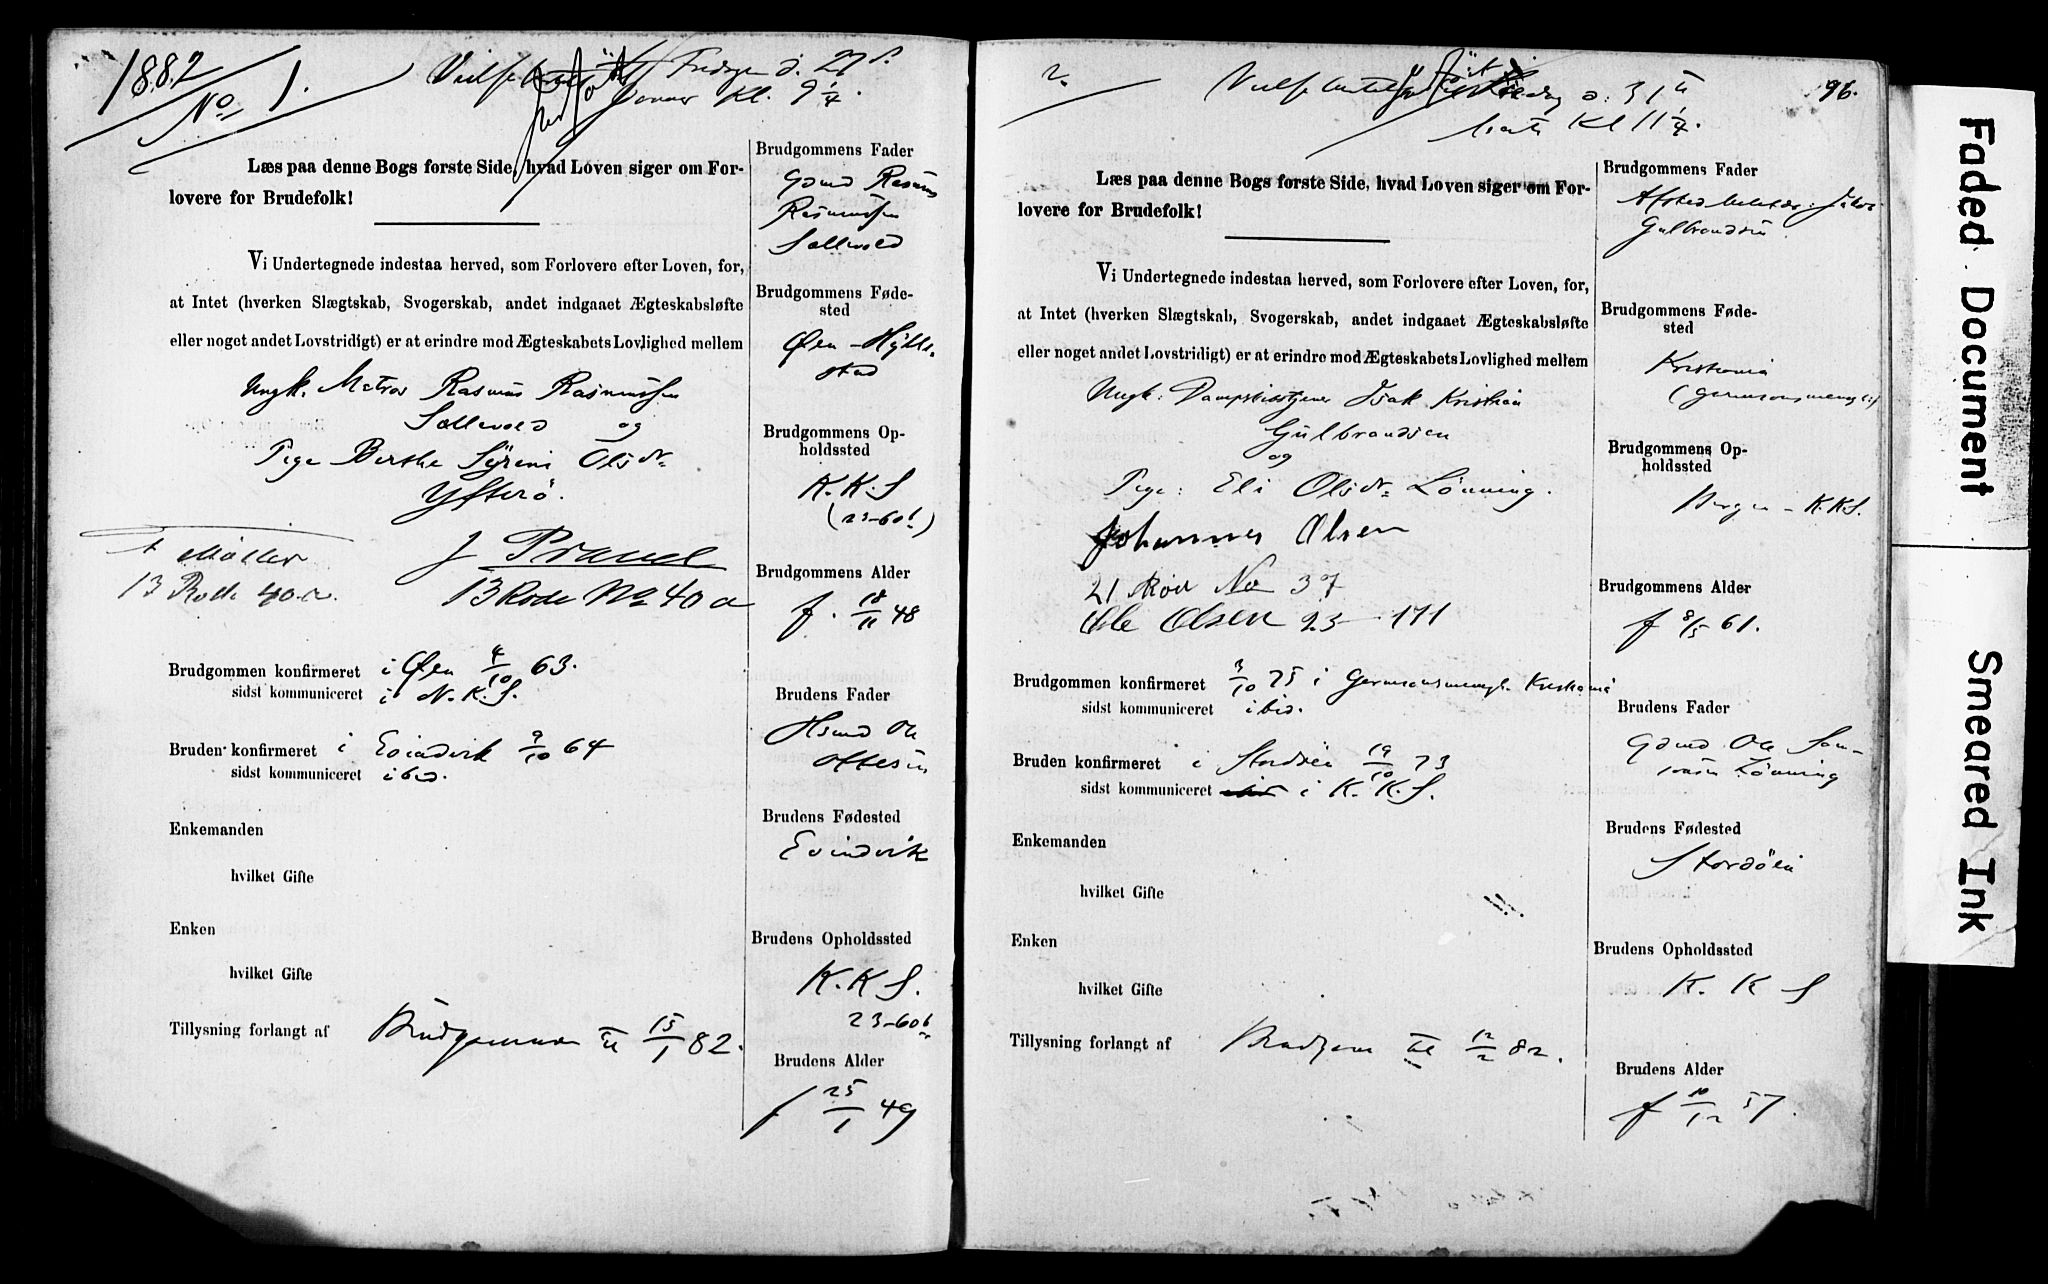 1882
No 1.
Fredag d. 27
Kl. 9 1/4.
Læs paa denne Bogs første Side, hvad Loven siger om For-
lovere for Brudefolk!
Vi Undertegnede indestaa herved, som Forlovere efter Loven, for,
at Intet (hverken Slægtskab, Svogerskab, andet indgaaet Ægteskabsløfte
eller noget andet Lovstridigt) er at erindre mod Ægteskabets Lovlighed mellem
Ungk. Matros Rasmus Rasmussen
Sællevold og
Pige Berthe Sÿrine Olsdr
Yfterö.
Møller
13 Rode 40 a.
J Prauel
13 Rode No 40 a
Brudgommen konfirmeret i Øen 4/10 63.
sidst kommuniceret i N.K.S.
Bruden konfirmeret i Evindvik 9/10 64
sidst kommuniceret ibid.
Enkemanden
hvilket Gifte
Enken
hvilket Gifte
Tillysning forlangt af Brudgommen 15/1 82.
Brudgommens Fader
Gdmd Rasmus
Rasmussen
Sællevold
Brudgommens Føde-
sted
Øen - Hÿlle-
stad
Brudgommens Op-
holdssted
K.K.S
(23-60b)
Brudgommens Alder
f. 18/11 48
Brudens Fader
Hsmd Ole
Ottesen
Brudens Fødested
Evindvik
Brudens Opholdssted
K.K S.
23-60b
Brudens Alder
f 25/1 49
2.
d. 31
Marts Kl 11 1/4.
96.
Læs paa denne Bogs første Side, hvad Loven siger om For-
lovere for Brudefolk!
Vi Undertegnede indestaa herved, som Forlovere efter Loven, for,
at Intet (hverken Slægtskab, Svogerskab, andet indgaaet Ægteskabsløfte
eller noget andet Lovstridigt) er at erindre mod Ægteskabets Lovlighed mellem
Ungk: Isak Kristian
Gulbrandsen
og
Pige: Eli Olsdr Lönning.
Johannes Olsen
21 Rod No 37
Ole Olsen 23 - 171
Brudgommen konfirmeret 3/10 75 i Garnisonsmengh. Kristiania
sidst kommuniceret ibid.
Bruden konfirmeret i Stordöen 19/10 73
sidst kommuniceret i K.K.S.
Enkemanden
hvilket Gifte
Enken
hvilket Gifte
Tillysning forlangt af Brudgom 12/2 82.
Brudgommens Fader
Gulbrandsen
Brudgommens Føde-
sted
Kristiania
(Garnisonsmengh)
Brudgommens Op-
holdssted
Bergen - K.K.S.
Brudgommens Alder
f 8/5 61.
Brudens Fader
Gdmd Ole Sam-
sonsen Lönning
Brudens Fødested
Stordöen
Brudens Opholdssted
K. K S
Brudens Alder
f 10/12 57.
Faded Document
Smeared Ink